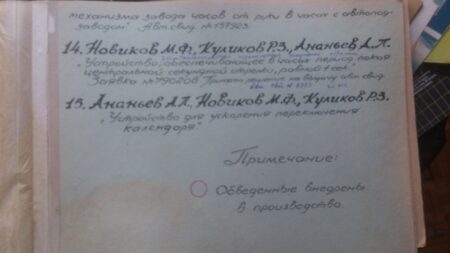 механизма завода часов от руки в часах с автопод-
заводом" Авт. свид. № 157923
14. Новиков М.Ф., Куликов Р.З., Ананьев А.П.
„Устройство, обеспечивающее в часах период покоя
центральной секундной стрелки, равной 1 сек"
Заявка № 790208. на выдачу авт. свид.
15. Ананьев А.П., Новиков М.Ф., Куликов Р.З.
„Устройство для ускорения переключения
календаря"
Примечание:
Обведенные внедрены
в производство